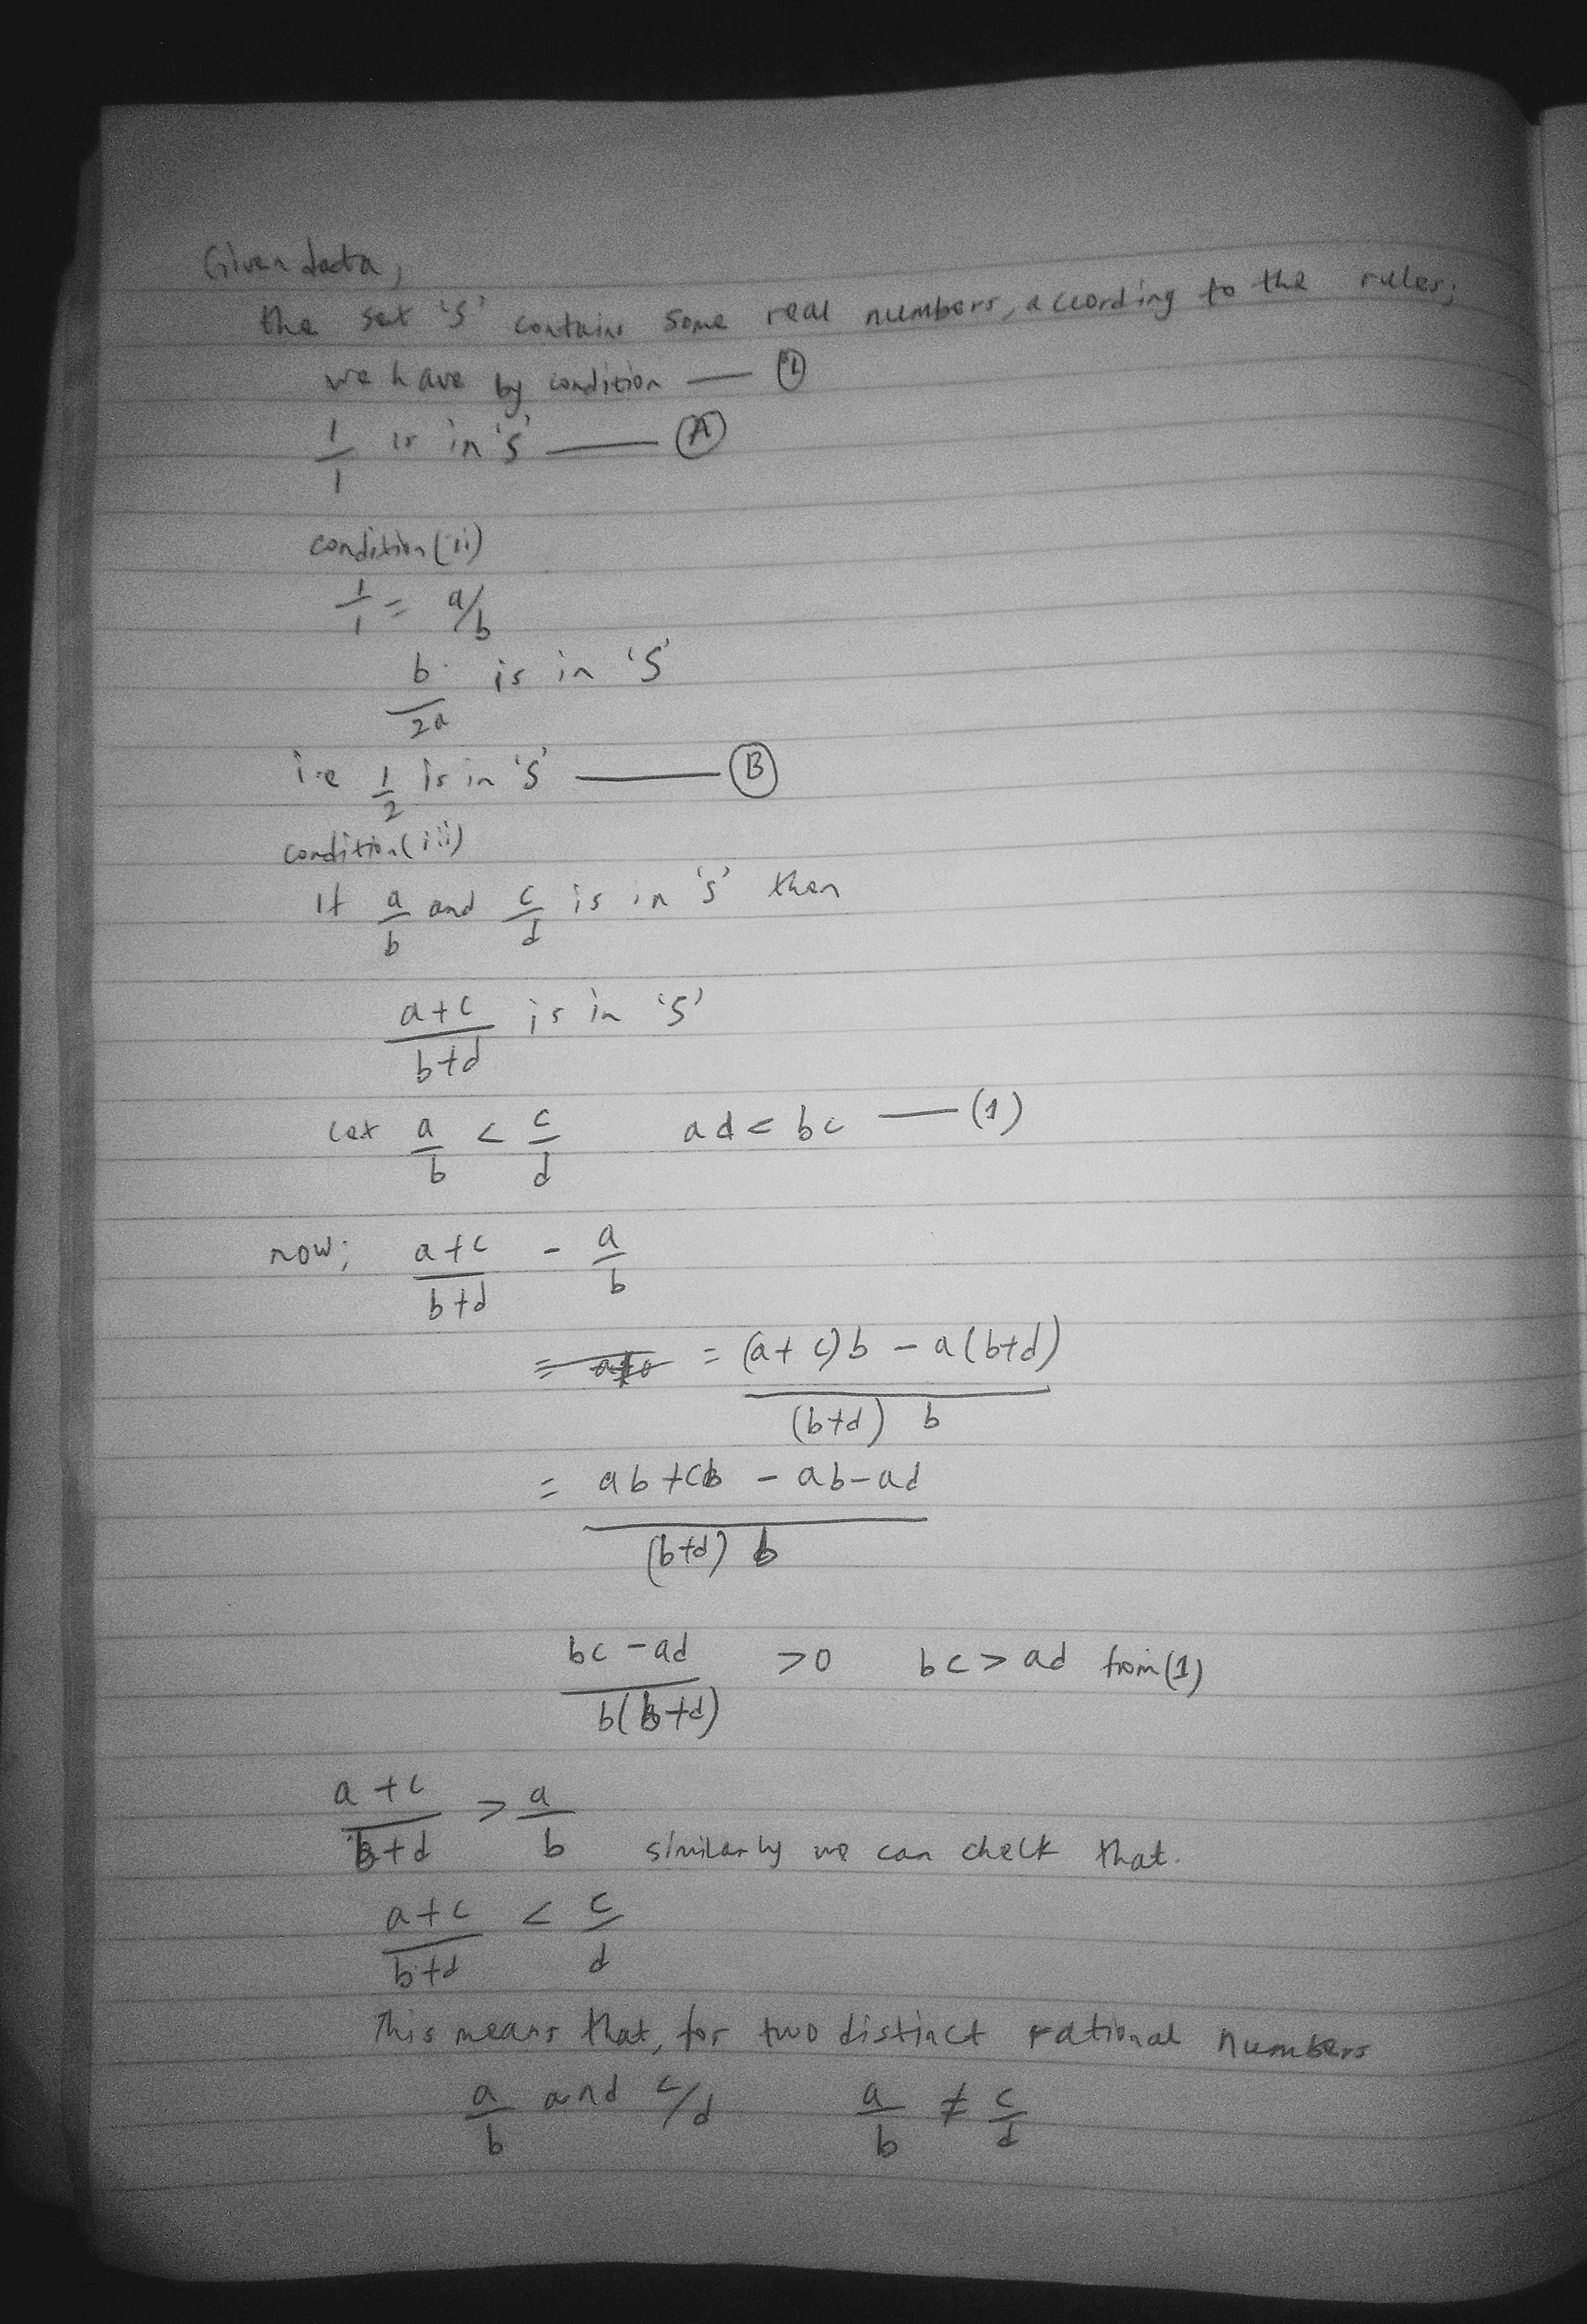 Given data,
the set 'S' contains some real numbers, according to the rules;
we have by condition — (1)
1/1 is in 'S' — (A)
condition (ii)
1/1 = a/b
b/2a is in 'S'
i.e 1/2 is in 'S' — (B)
condition (iii)
If a/b and c/d is in 'S' then
a+c/b+d is in 'S'
Let a/b < c/d ad < bc — (1)
now; a+c/b+d - a/b
= = (a+c)b - a(b+d)/(b+d) b
= ab+cb - ab-ad/(b+d) b
bc-ad/b(b+d) >0 bc > ad from (1)
a+c/b+d > a/b similarly we can check that.
a+c/b+d < c/d
This means that, for two distinct rational numbers
a/b and c/d a/b ≠ c/d